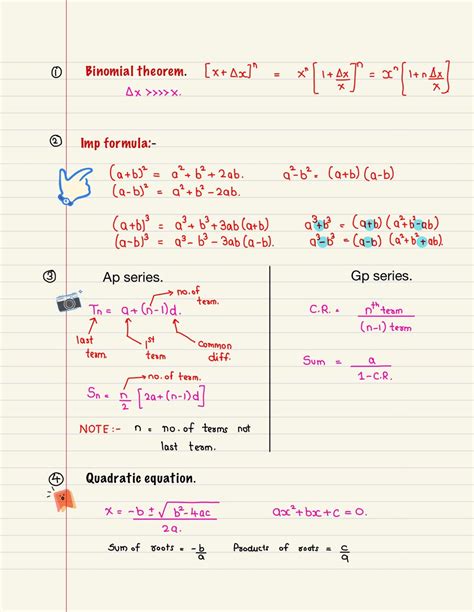 ① Binomial theorem. [x+Δx]ⁿ = xⁿ[1+Δx/x]ⁿ = xⁿ[1+n Δx/x]
Δx >>>>x.
② Imp formula:-
(a+b)² = a²+b²+2ab. a²-b² = (a+b)(a-b)
(a-b)² = a²+b²-2ab.
(a+b)³ = a³+b³+3ab(a+b) a³+b³ = (a+b)(a²+b²-ab)
(a-b)³ = a³-b³-3ab(a-b). a³-b³ = (a-b)(a²+b²+ab).
③ Ap series.
no.of term.
Tn = a+(n-1)d.
last term
1st term
common diff.
no.of term.
Sn = n/2 [2a+(n-1)d]
NOTE:- n = no.of terms not
last term.
Gp series.
C.R. = nth term/(n-1) term
Sum = a/1-C.R.
④ Quadratic equation.
x = -b ± √b²-4ac/2a. ax²+bx+c=0.
Sum of roots = -b/a Products of roots = c/a